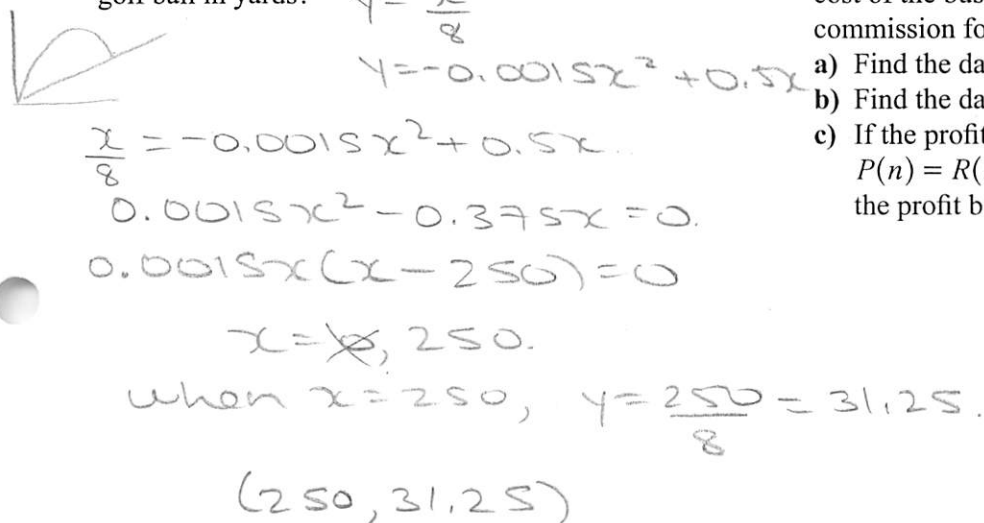 golf ball in yards?
y = x/8
y=-0.0015x² +0.5x
x/8 = -0.0015x²+0.5x.
0.0015x² - 0.375x = 0.
0.0015x(x-250)=0
x=0, 250.
when x=250, y=250/8 = 31.25.
(250, 31.25)
cost of the bus
commission fo
a) Find the da
b) Find the da
c) If the profit
P(n) = R(
the profit b